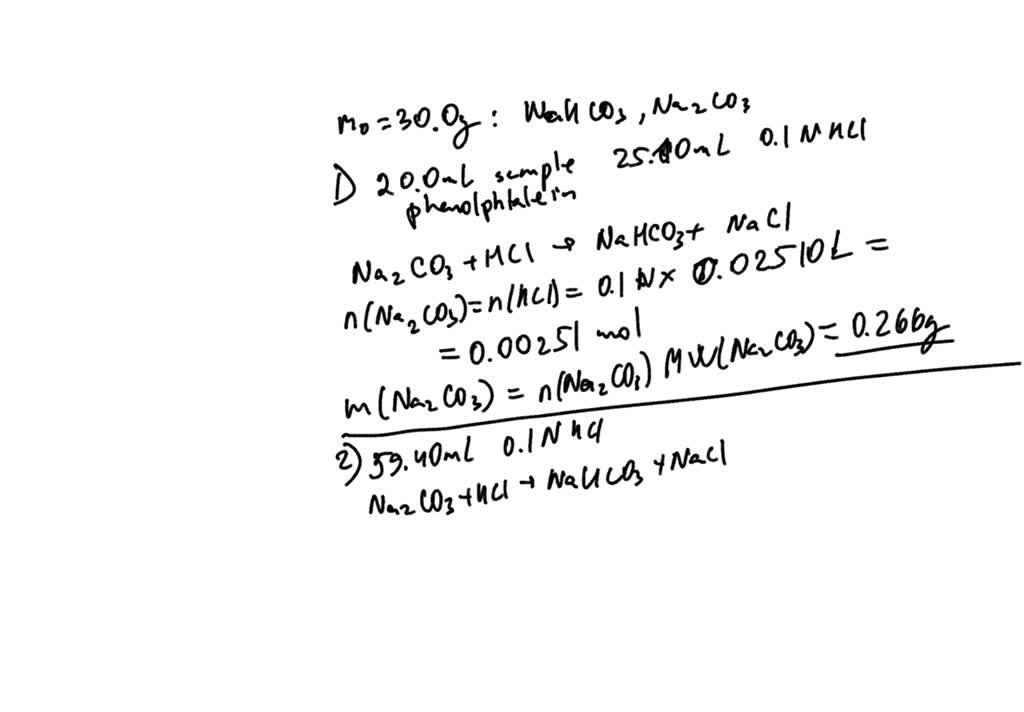 m₀ = 30.0g : NaHCO₃, Na₂CO₃
1) 20.0mL sample 25.10mL 0.1 N HCl
phenolphtalein
Na₂CO₃ + HCl → NaHCO₃ + NaCl
n(Na₂CO₃) = n(HCl) = 0.1 N × 0.02510L =
= 0.00251 mol
m(Na₂CO₃) = n(Na₂CO₃) MW(Na₂CO₃) = 0.266g
2) 59.40mL 0.1N HCl
Na₂CO₃ + HCl → NaHCO₃ + NaCl